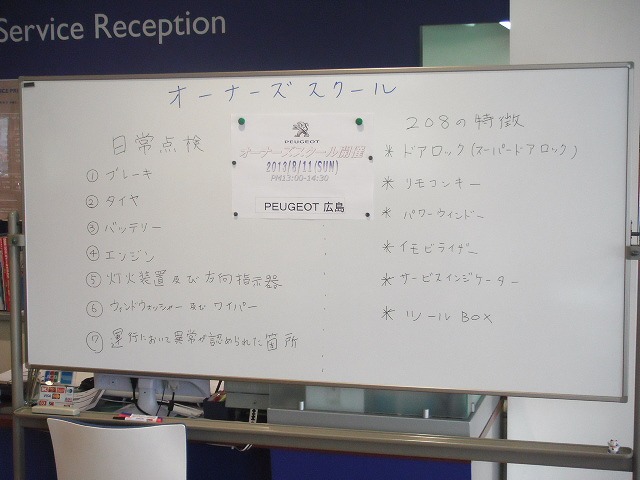 Service Reception
オーナーズスクール
PEUGEOT
オーナーズスクール開催
2013/8/11(SUN)
PM13:00-14:30
PEUGEOT 広島
日常点検
① ブレーキ
② タイヤ
③ バッテリー
④ エンジン
⑤ 灯火装置及び方向指示器
⑥ ウィンドウォッシャー及びワイパー
⑦ 運行において異常が認められた箇所
208の特徴
* ドアロック(スーパードアロック)
* リモコンキー
* パワーウィンドー
* イモビライザー
* サービスインジケーター
* リノールBOX